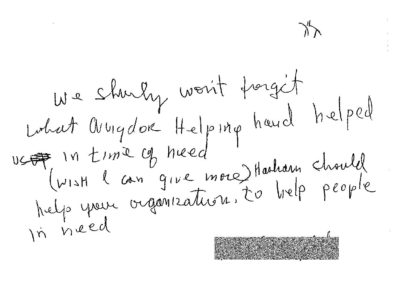 We shurly won't forgit
what Avigdor Helping hand helped
us in time of need
(wish I can give more) Hashem should
help your organization, to help people
in need